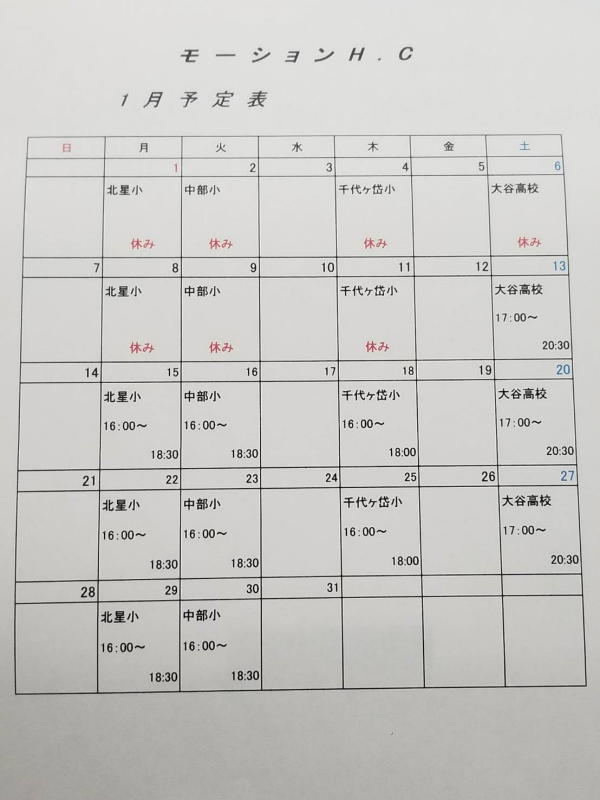 モーションH.C
1月予定表
日 月 火 水 木 金 土
1 2 3 4 5 6
北星小 中部小 千代ヶ岱小 大谷高校
休み 休み 休み 休み
7 8 9 10 11 12 13
北星小 中部小 千代ヶ岱小 大谷高校
17:00～
休み 休み 休み 20:30
14 15 16 17 18 19 20
北星小 中部小 千代ヶ岱小 大谷高校
16:00～ 16:00～ 16:00～ 17:00～
18:30 18:30 18:00 20:30
21 22 23 24 25 26 27
北星小 中部小 千代ヶ岱小 大谷高校
16:00～ 16:00～ 16:00～ 17:00～
18:30 18:30 18:00 20:30
28 29 30 31
北星小 中部小
16:00～ 16:00～
18:30 18:30